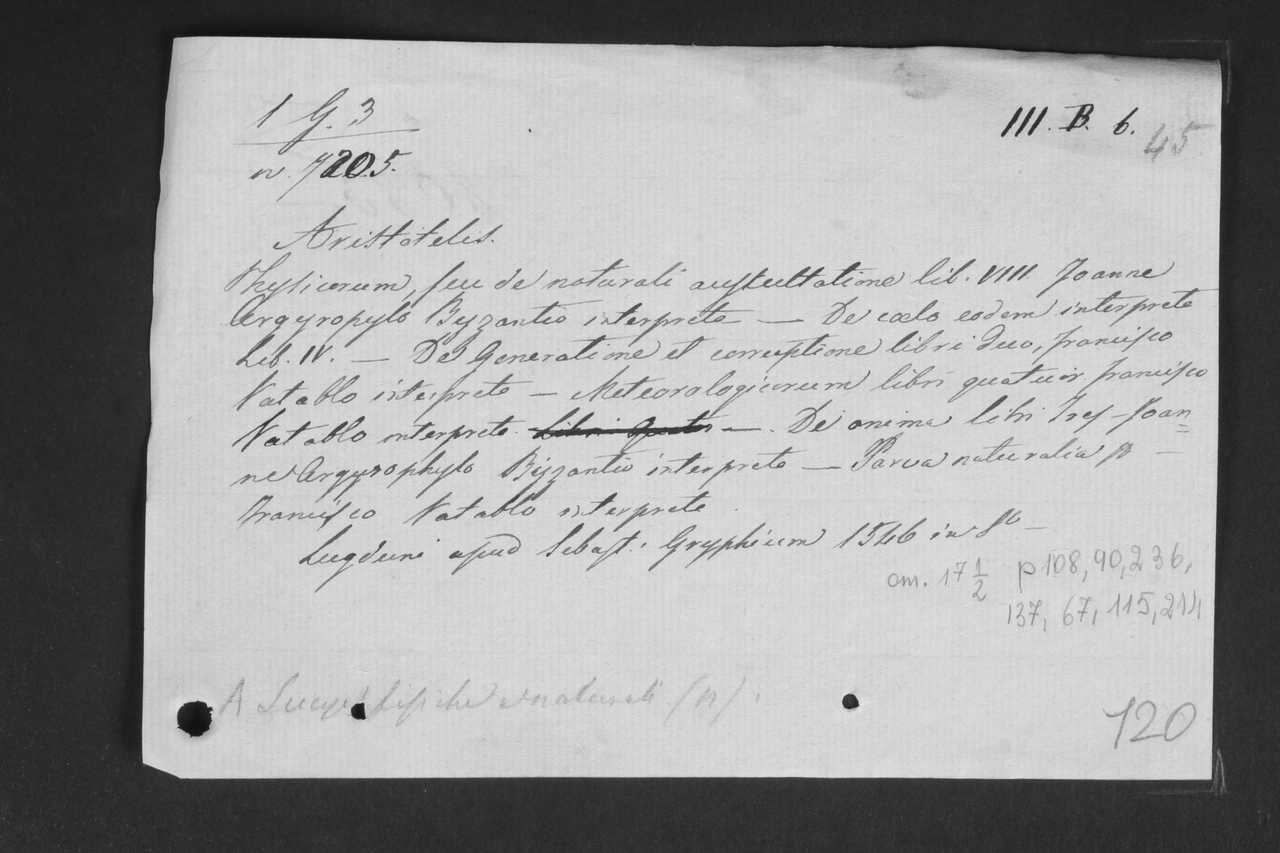 1 G. 3
III. B. 6.
45
n. 7205.
Aristotelis.
Physicorum, seu de naturali auscultatione lib. VIII Joanne
Argyropylo Byzantio interprete — De cœlo eodem interprete
Lib. IV. — De Generatione et corruptione libri duo, Francisco
Vatablo interprete — Meteorologicorum libri quatuor Francisco
Vatablo interprete. Libri quat — . De anima libri Tres — Joan=
ne Argyrophylo Byzantio interprete — Parva naturalia —
Francisco Vatablo interprete
Lugduni apud Sebast. Gryphium 1546 in 8° —
cm. 17 1/2 p 108, 90, 236,
137, 67, 115, 214,
A Scienze fisiche naturali
120